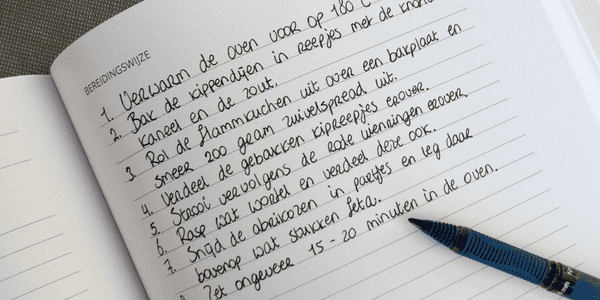 BEREIDINGSWIJZE
1. Verwarm de oven voor op 180 C
2. Bak de kippendijen in reepjes met de
kaneel en de zout.
3 Rol de flammkuchen uit over een bakplaat en
smeer 200 gram zuivelspread uit.
4. Verdeel de gebakken kipreepjes erover.
5. Strooi vervolgens de rode erover.
6. Rasp wat wortel en verdeel deze ook.
7. Snijd de abrikozen in partjes en leg daar
bovenop wat stukken feta.
Zet ongeveer 15 - 20 minuten in de oven.